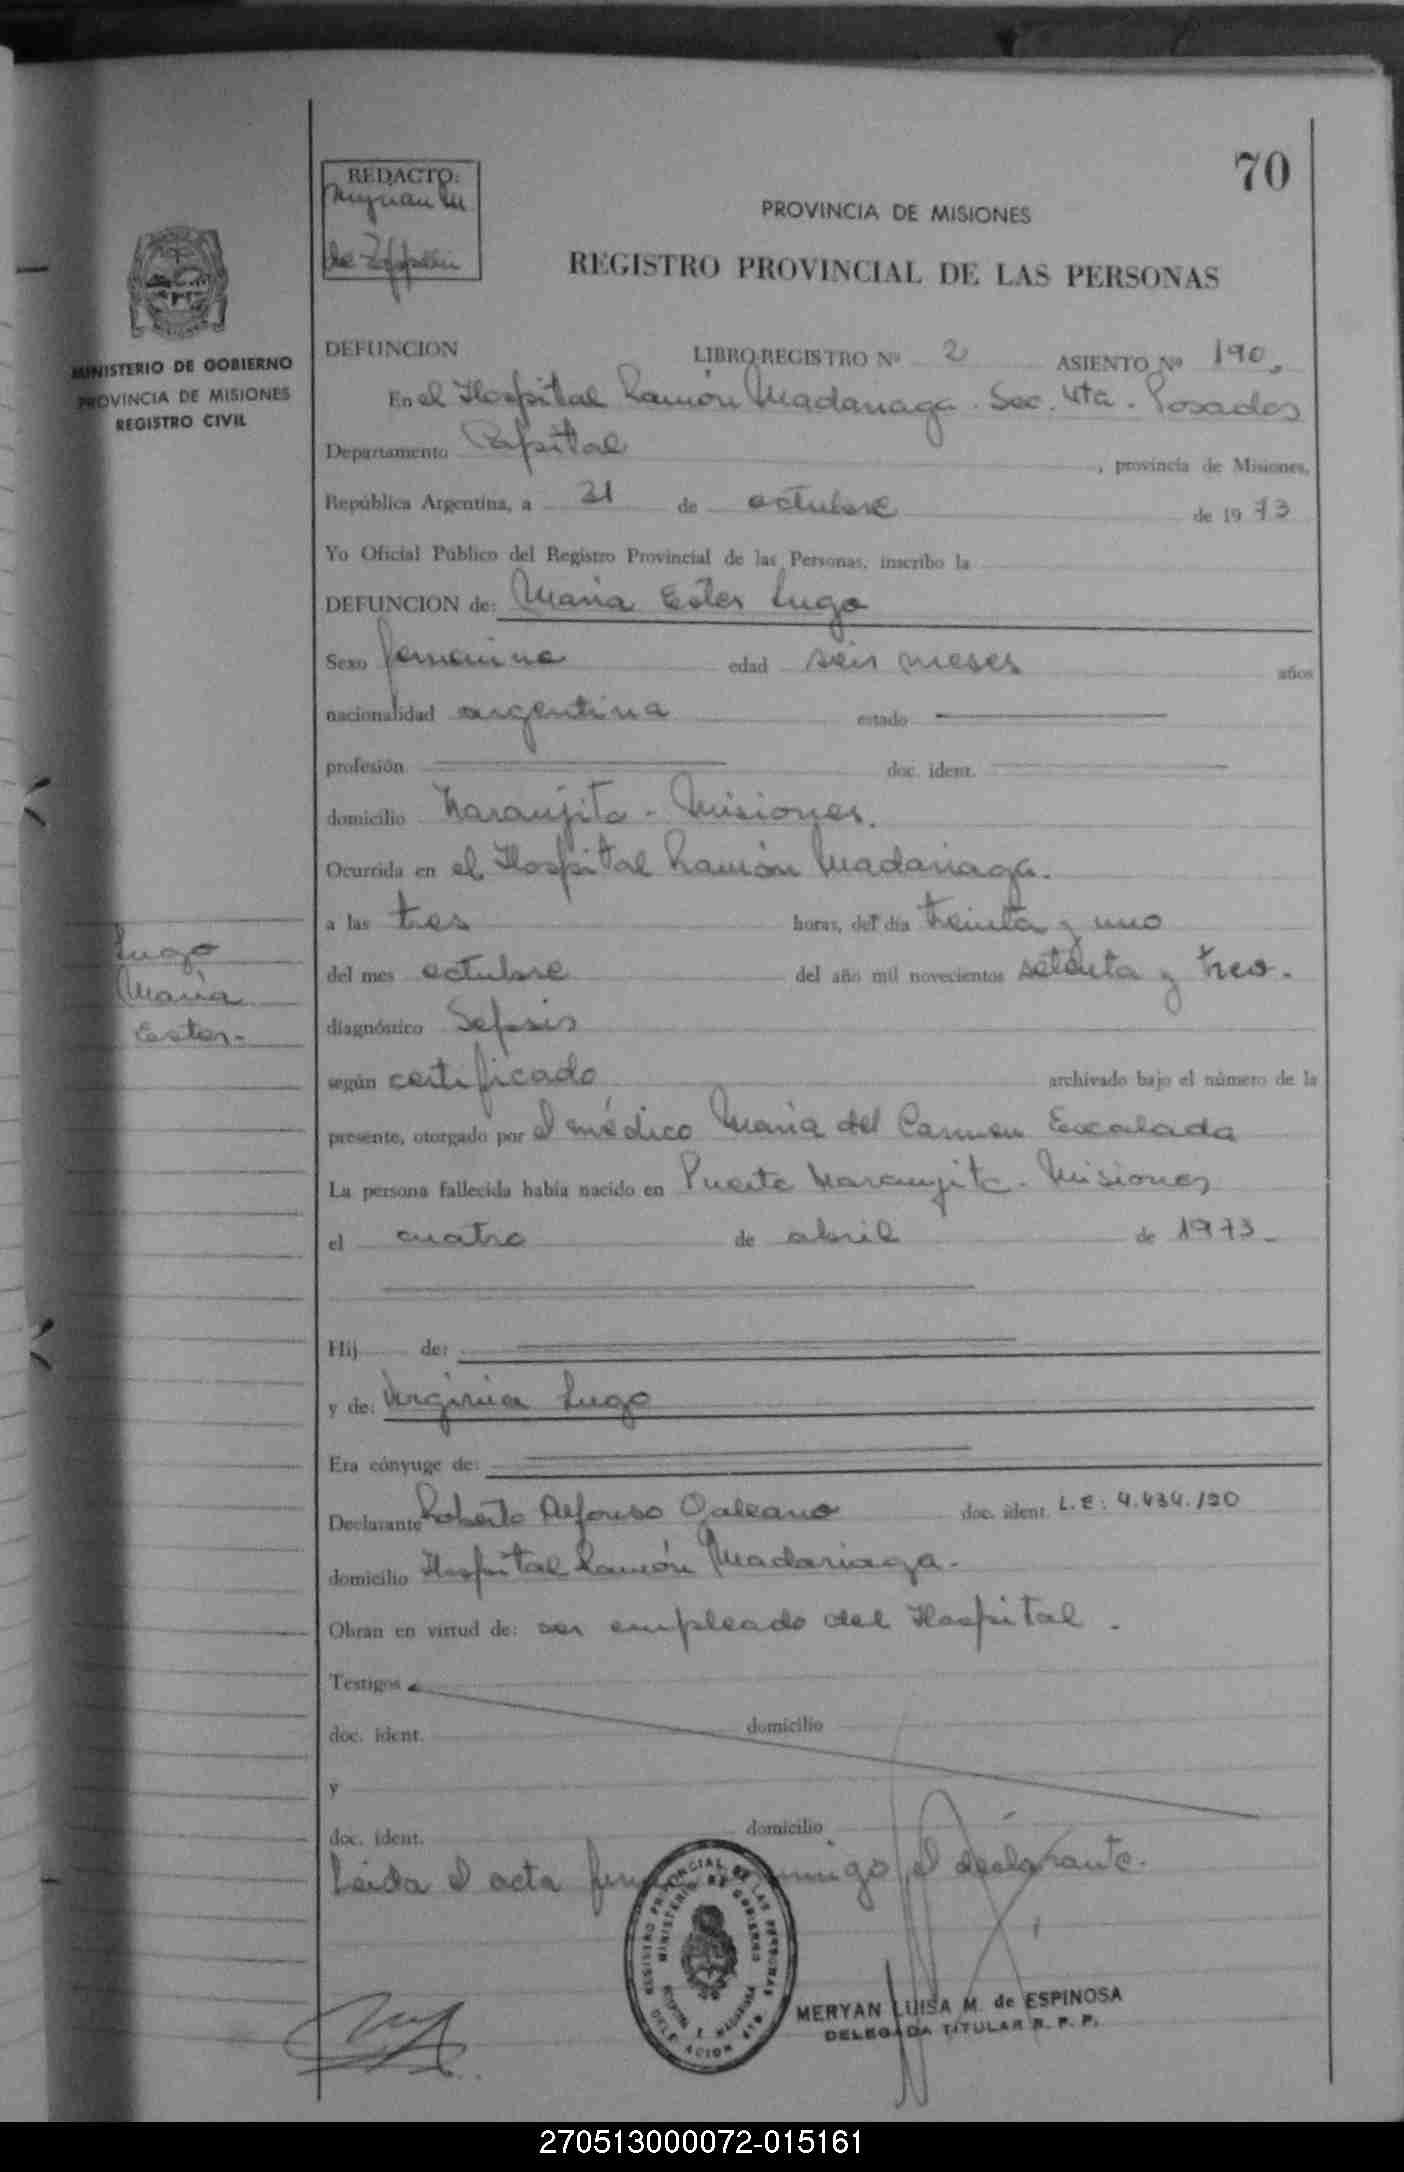 70
REDACTO:
de
PROVINCIA DE MISIONES
REGISTRO PROVINCIAL DE LAS PERSONAS
MINISTERIO DE GOBIERNO
PROVINCIA DE MISIONES
REGISTRO CIVIL
DEFUNCION LIBRO REGISTRO Nº 2 ASIENTO Nº 190
En el Hospital Ramón Madariaga. Sec. 4ta. Posadas
Departamento Capital, provincia de Misiones,
República Argentina, a 31 de octubre de 1973
Yo Oficial Público del Registro Provincial de las Personas, inscribo la
DEFUNCION de: Maria Ester Lugo
Sexo femenino edad seis meses años
nacionalidad argentina estado
profesión doc. ident.
domicilio Naranjito - Misiones.
Ocurrida en el Hospital Ramón Madariaga.
a las tres horas, del día treinta y uno
del mes octubre del año mil novecientos setenta y tres.
diagnóstico Sepsis
según certificado archivado bajo el número de la
presente, otorgado por el médico Maria del Carmen Encalada
La persona fallecida había nacido en Puerto Naranjito - Misiones
el cuatro de abril de 1973.
Lugo
Maria
Ester.-
Hij de:
y de: Virginia Lugo
Era cónyuge de:
Declarante Roberto Alfonso Galeano doc. ident. L.E: 4.434.120
domicilio Hospital Ramón Madariaga.
Obran en virtud de: ser empleado del Hospital.
Testigos
doc. ident. domicilio
y
doc. ident. domicilio
Leida el acta conmigo el declarante.
REGISTRO PROVINCIAL DE LAS PERSONAS
MINISTERIO DE GOBIERNO
HOSPITAL R. MADARIAGA
DELEGACION 4TA.
MERYAN LUISA M. de ESPINOSA
DELEGADA TITULAR R. P. P.
270513000072-015161